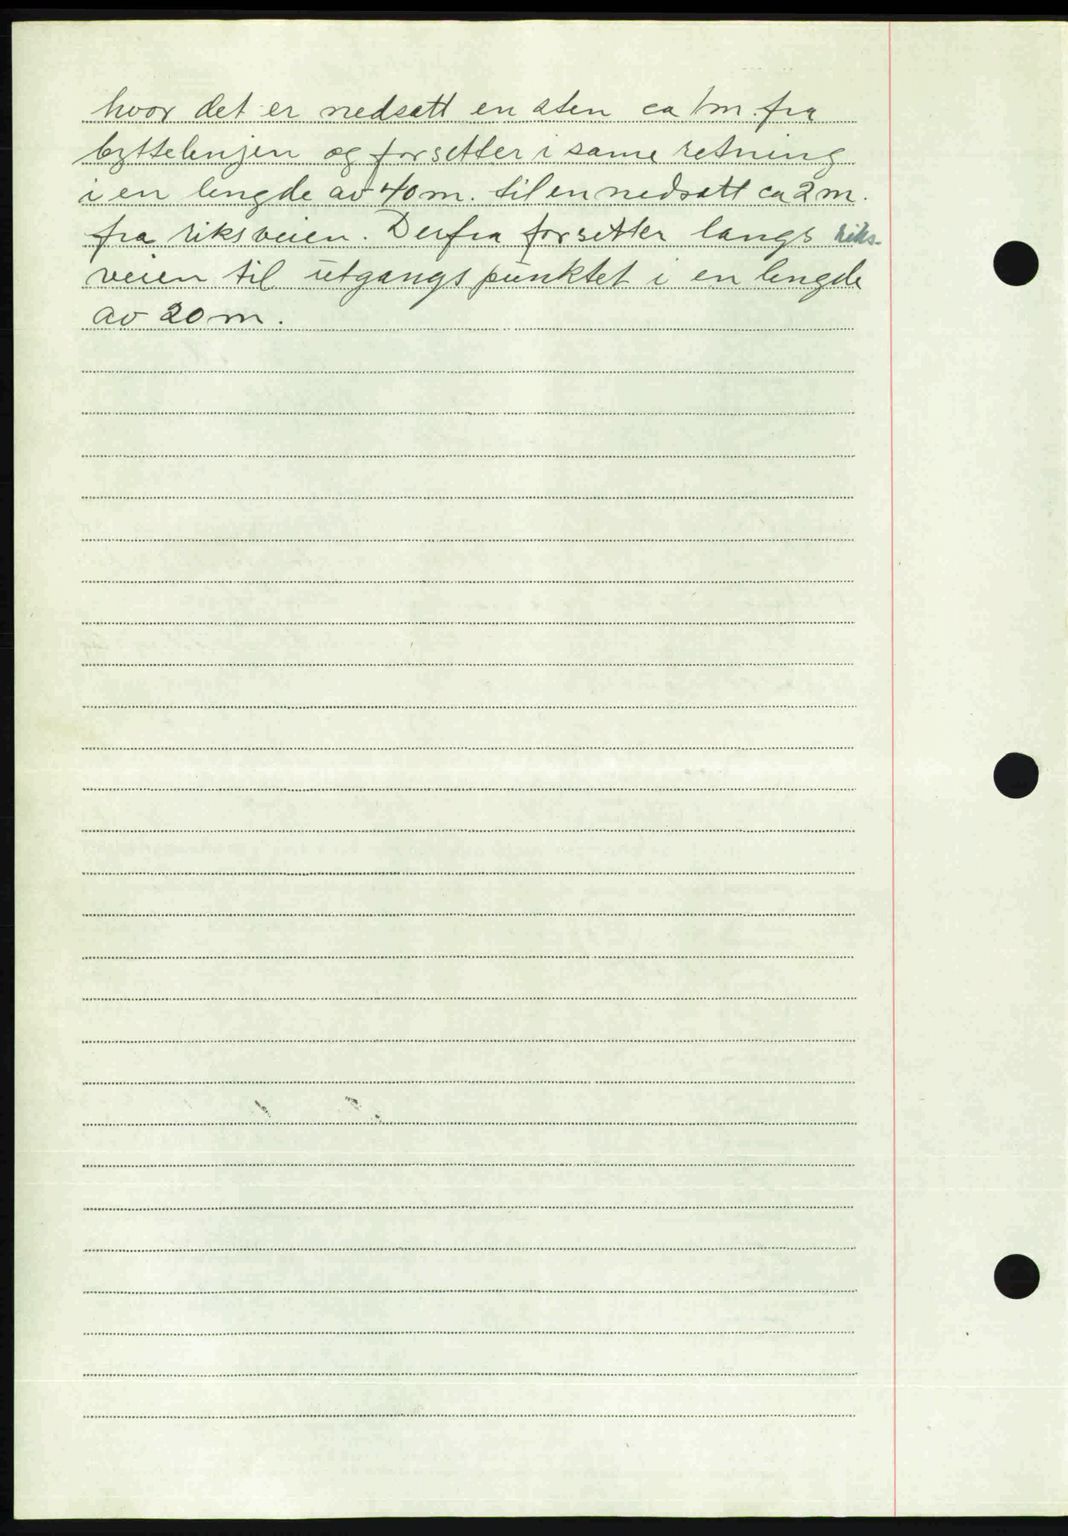 hvor det er nedsatt en sten ca 1m. fra
byttelinjen og forsetter i same retning
i en lengde av 40 m. til en nedsatt ca 2 m.
fra riksveien. Derfra forsetter langs riks-
veien til utgangspunktet i en lengde
av 20 m.